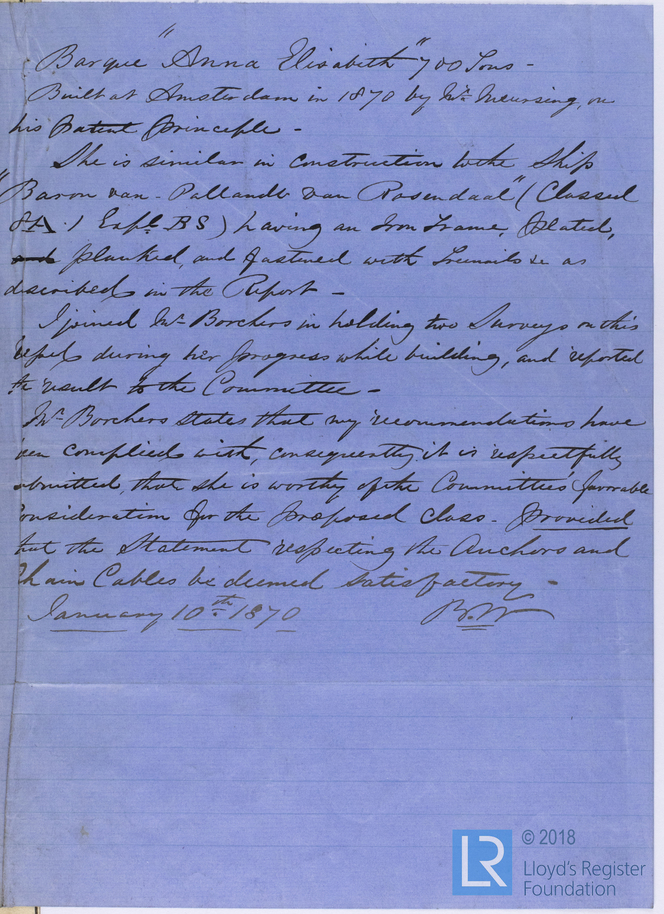 Barque "Anna Elisabeth" 700 Tons -
Built at Amsterdam in 1870 by Mr. Meursing, on
his Patent Principle -
She is similar in construction to the Ship
"Baron van Pallandt van Rosendaal" (Classed
A 1 Expl. BS) having an Iron Frame, plated,
and planked, and fastened with Treenails &c as
described in the Report -
I joined Mr. Borchers in holding two Surveys on this
Vessel during her progress while building, and reported
the result to the Committee -
Mr. Borchers states that my recommendations have
been complied with, consequently it is respectfully
submitted, that she is worthy of the Committee's favorable
consideration for the proposed class - provided
that the Statement respecting the Anchors and
Chain Cables be deemed satisfactory -
January 10th 1870 B.W
LR © 2018
Lloyd's Register
Foundation